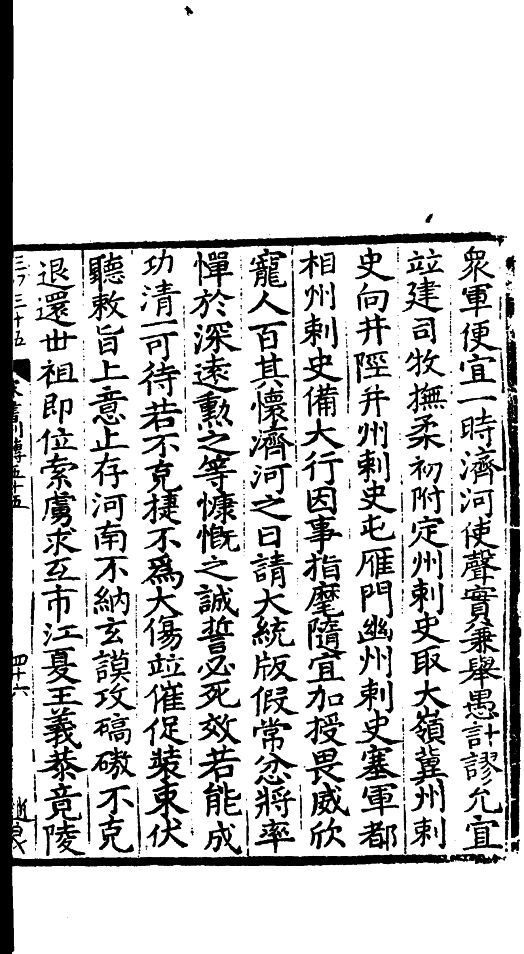 衆軍便宜一時濟河使聲實兼舉愚計謬允宜
竝建司牧撫柔初附定州刺史取大嶺冀州刺
史向井陘并州刺史屯雁門幽州刺史塞軍都
相州刺史備大行因事指麾隨宜加授畏威欣
寵人百其懷濟河之日請大統版假常忿將率
憚於深遠勲之等慷慨之誠誓必死效若能成
功清一可待若不克捷不爲大傷竝催促裝束伏
聽敕旨上意止存河南不納玄謨攻碻磝不克
退還世祖即位索虜求互市江夏王義恭竟陵
四十六